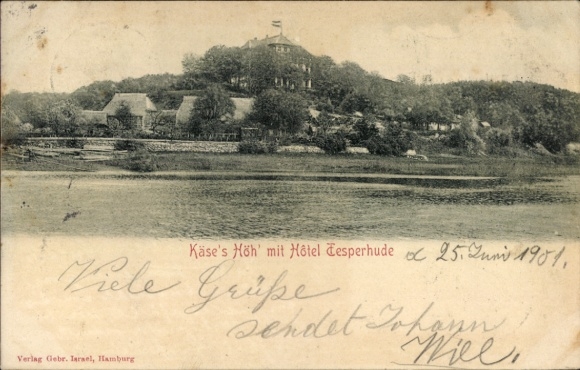 Käse's Höh' mit Hôtel Tesperhude
d 25. Juni 1901.
Viele Grüße
sendet Johann
Will.
Verlag Gebr. Israel, Hamburg